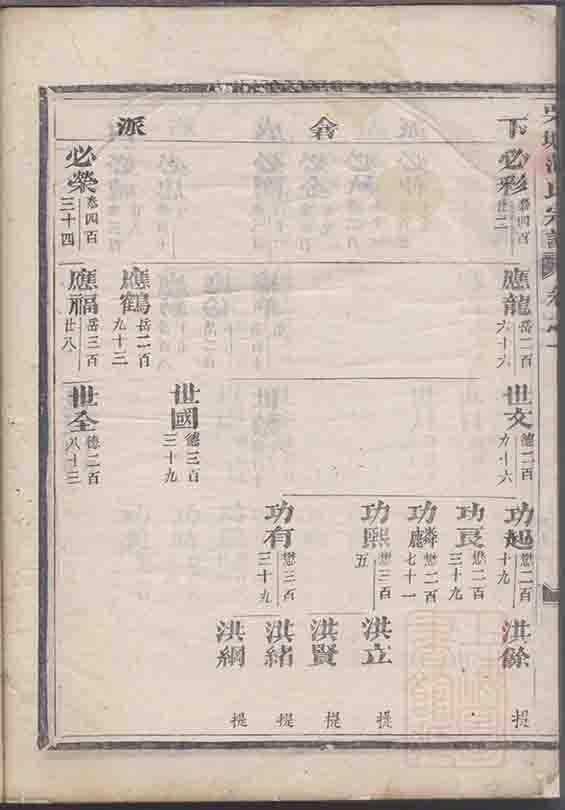 下 倉 派
必彩 卷四百廿二
必榮 卷四百三十四
應龍 岳一百六十六
應鶴 岳二百九十三
應福 岳三百廿八
世文 德二百九十六
世國 德三百三十九
世全 德二百八十三
功起 懋二百十九
功良 懋二百三十九
功麟 懋二百七十一
功熙 懋三百五
功有 懋三百三十九
洪餘 提
洪立 提
洪賢 提
洪緒 提
洪綱 提